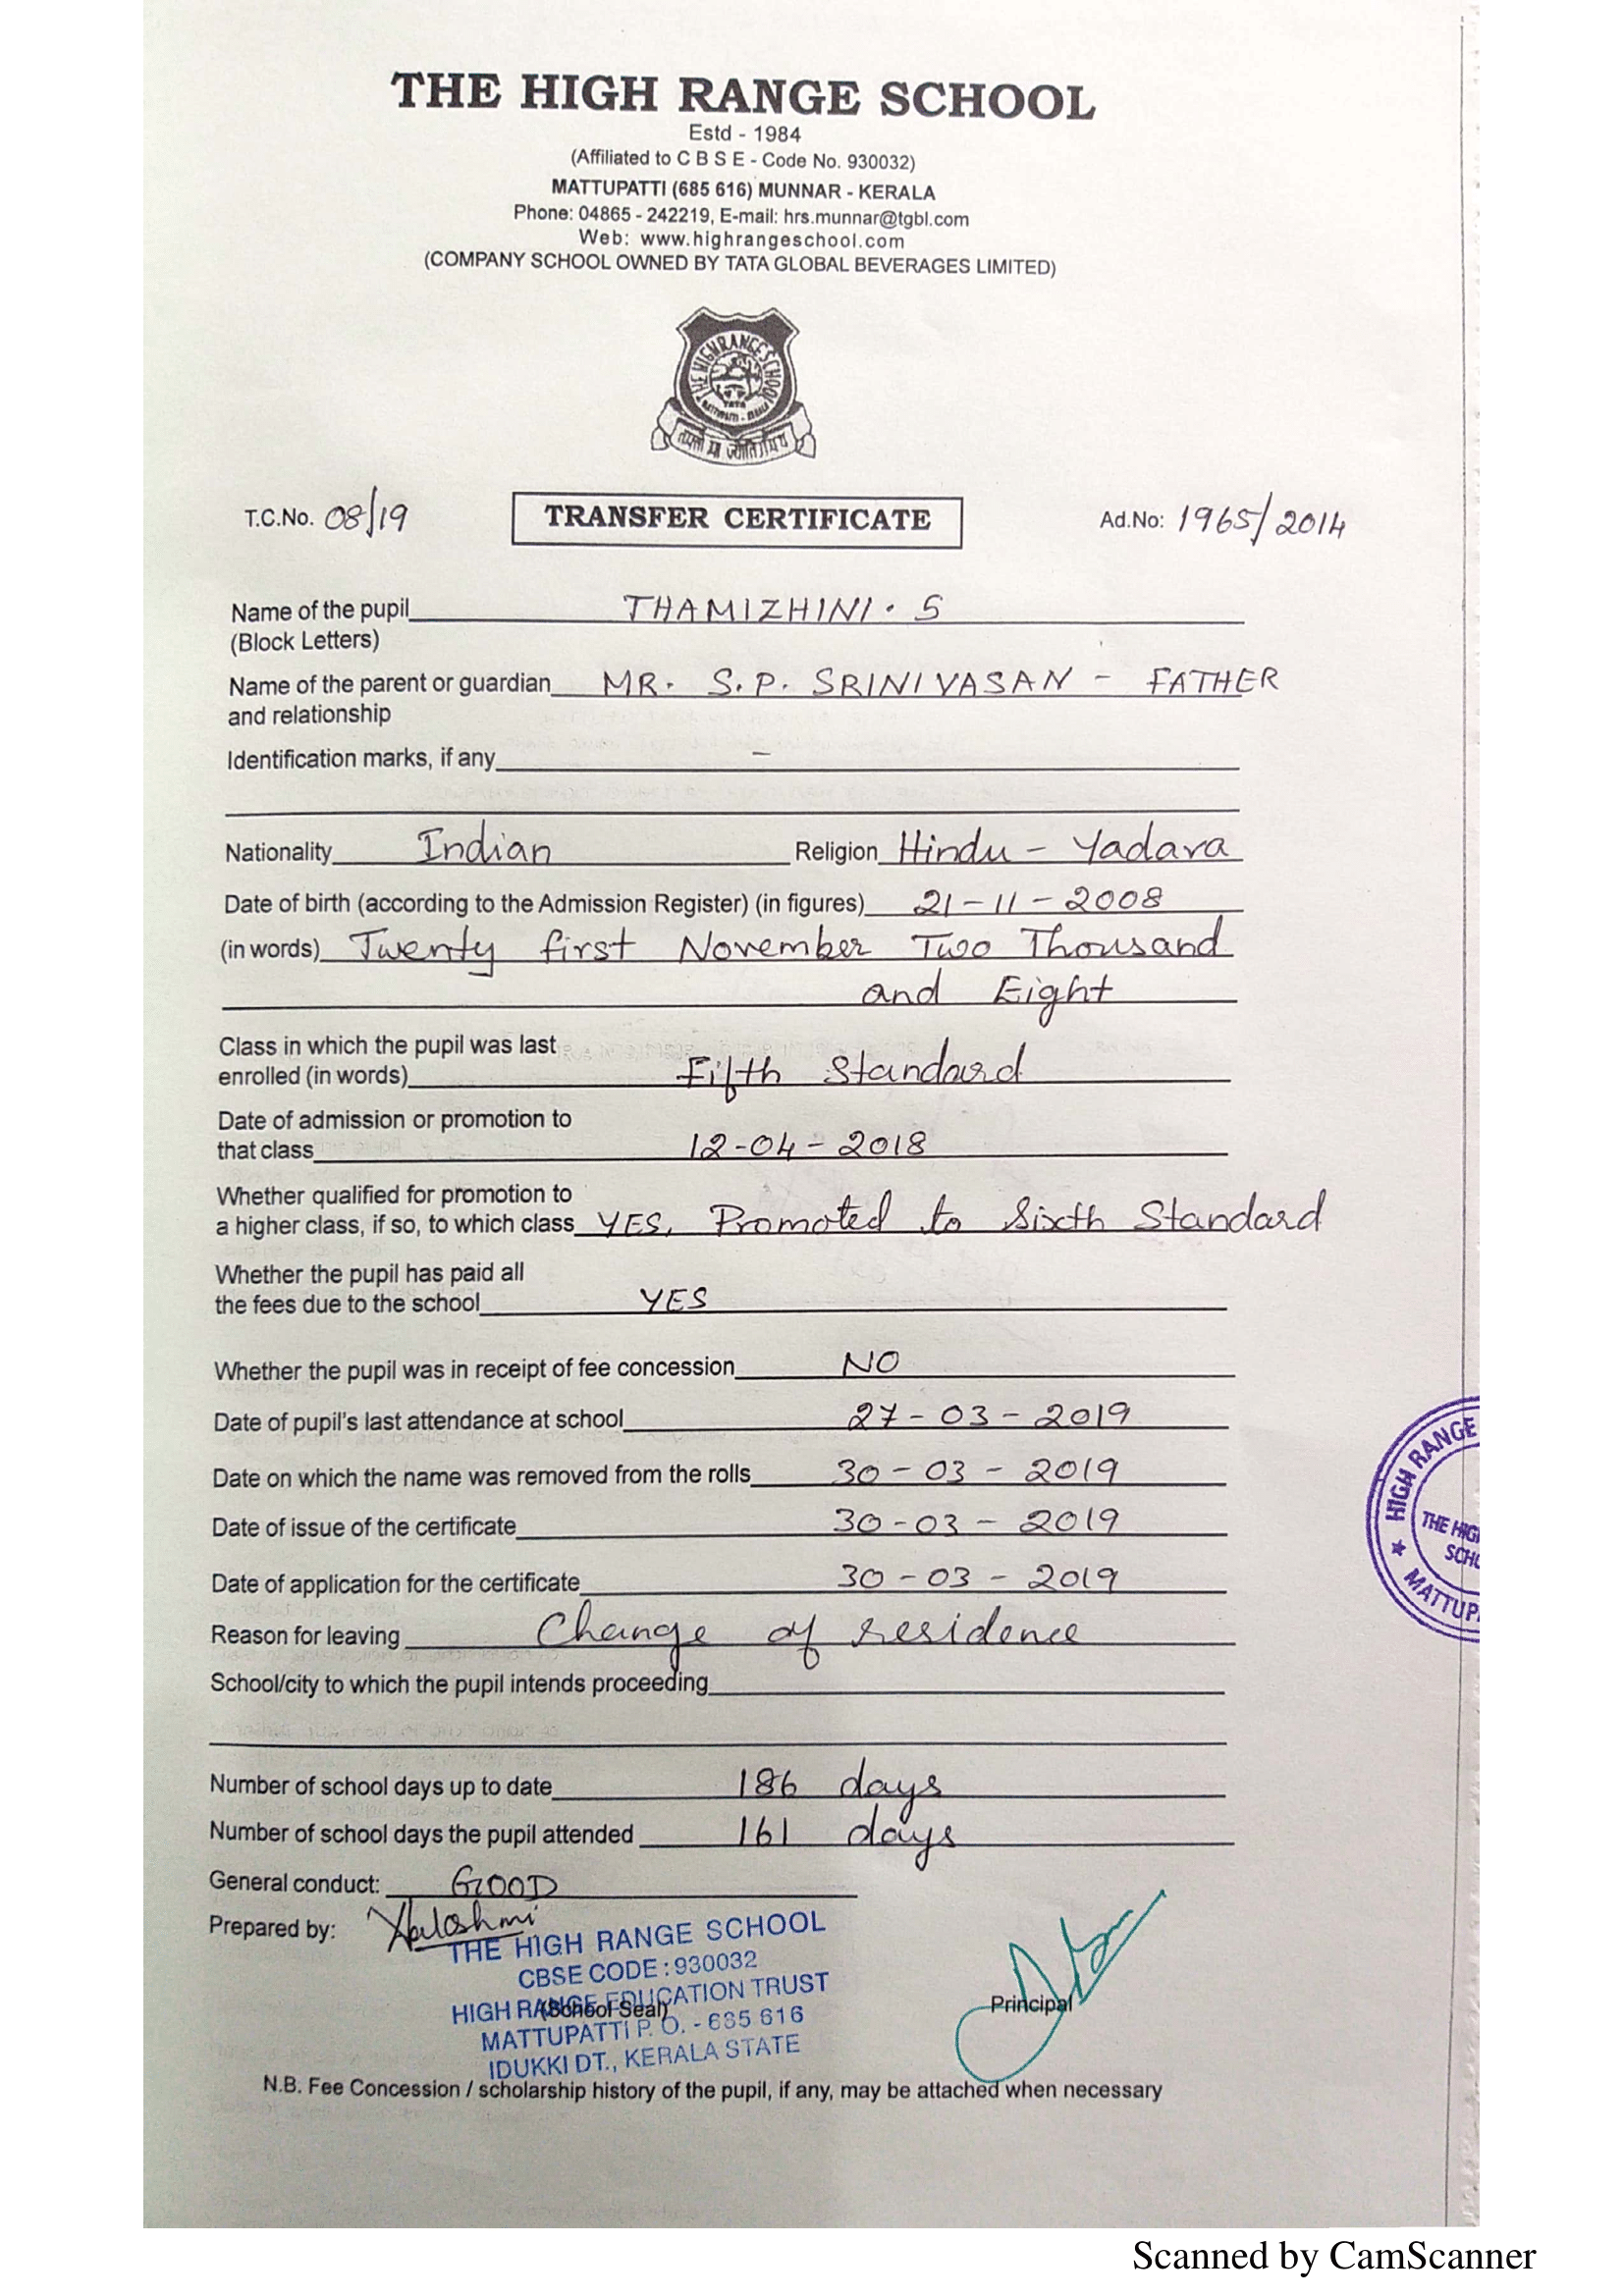 THE HIGH RANGE SCHOOL
Estd - 1984
(Affiliated to C B S E - Code No. 930032)
MATTUPATTI (685 616) MUNNAR - KERALA
Phone: 04865 - 242219, E-mail: hrs.munnar@tgbl.com
Web: www.highrangeschool.com
(COMPANY SCHOOL OWNED BY TATA GLOBAL BEVERAGES LIMITED)
THE HIGH RANGE SCHOOL
TATA
तमसो मा ज्योतिर्गमय
T.C.No. 08/19 TRANSFER CERTIFICATE Ad.No: 1965/2014
Name of the pupil THAMIZHINI. S
(Block Letters)
Name of the parent or guardian MR. S.P. SRINIVASAN - FATHER
and relationship
Identification marks, if any -
Nationality Indian Religion Hindu - Yadava
Date of birth (according to the Admission Register) (in figures) 21-11-2008
(in words) Twenty first November Two Thousand
and Eight
Class in which the pupil was last
enrolled (in words) Fifth Standard
Date of admission or promotion to
that class 12-04-2018
Whether qualified for promotion to
a higher class, if so, to which class YES, Promoted to Sixth Standard
Whether the pupil has paid all
the fees due to the school YES
Whether the pupil was in receipt of fee concession NO
Date of pupil's last attendance at school 27-03-2019
Date on which the name was removed from the rolls 30-03-2019
Date of issue of the certificate 30-03-2019
Date of application for the certificate 30-03-2019
Reason for leaving Change of residence
School/city to which the pupil intends proceeding
HIGH RANGE
THE HIG
SCHO
★ MATTUP
Number of school days up to date 186 days
Number of school days the pupil attended 161 days
General conduct: GOOD
Prepared by:
THE HIGH RANGE SCHOOL
CBSE CODE : 930032
HIGH RANGE EDUCATION TRUST
(School Seal)
MATTUPATTI P. O. - 685 616
IDUKKI DT., KERALA STATE
Principal
N.B. Fee Concession / scholarship history of the pupil, if any, may be attached when necessary
Scanned by CamScanner